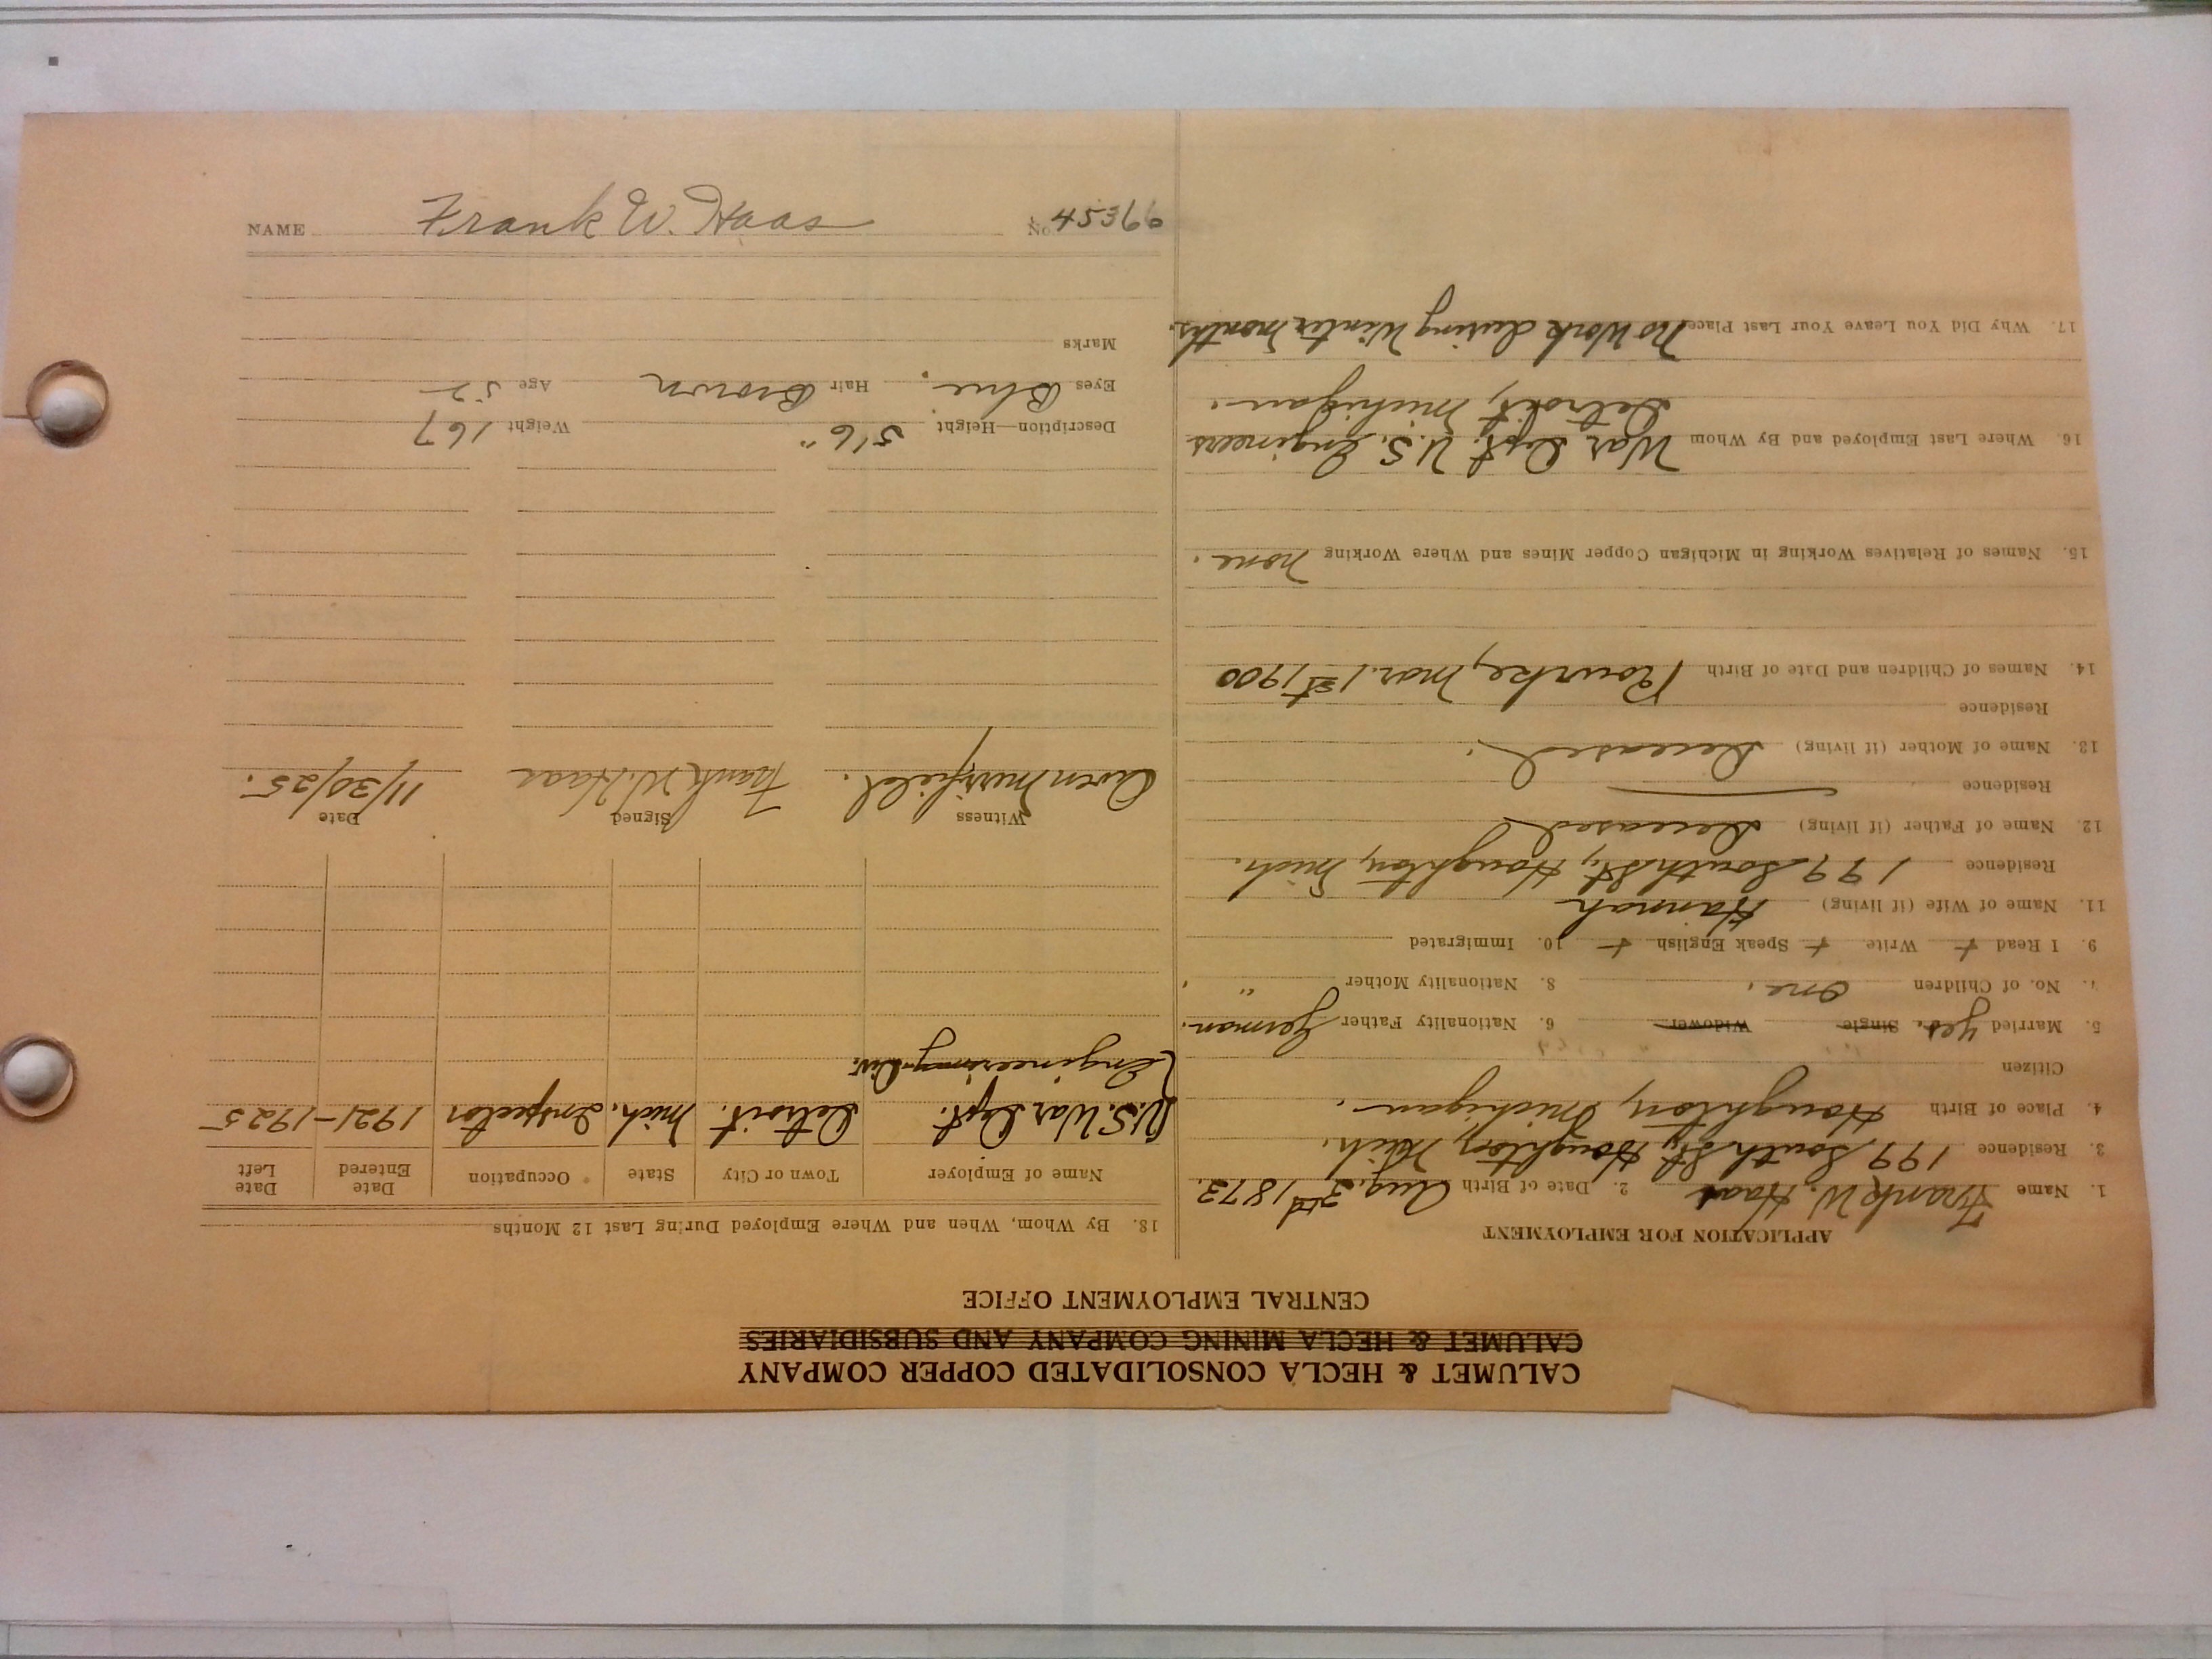 CALUMET & HECLA CONSOLIDATED COPPER COMPANY
CALUMET & HECLA MINING COMPANY AND SUBSIDIARIES
CENTRAL EMPLOYMENT OFFICE
APPLICATION FOR EMPLOYMENT
1. Name Frank W. Haas 2. Date of Birth Aug. 3rd 1873.
3. Residence 199 South St., Houghton, Mich.
4. Place of Birth Houghton, Michigan.
Citizen
5. Married yes. Single Widower 6. Nationality Father German.
7. No. of Children One. 8. Nationality Mother " .
9. I Read + Write + Speak English + 10. Immigrated
11. Name of Wife (if living) Hannah
Residence 199 South St., Houghton, Mich.
12. Name of Father (if living) Deceased
Residence
13. Name of Mother (if living) Deceased.
Residence
14. Names of Children and Date of Birth Rourke, Mar. 1st, 1900
15. Names of Relatives Working in Michigan Copper Mines and Where Working none.
16. Where Last Employed and By Whom War Dept. U.S. Engineers
Detroit, Michigan.
17. Why Did You Leave Your Last Place No Work during Winter months.
18. By Whom, When and Where Employed During Last 12 Months
Name of Employer Town or City State Occupation Date Entered Date Left
U.S. War Dept. Detroit. Mich. Inspector 1921-1925
(Engineering Div.
Witness Signed Date
Owen Murfield. Frank W. Haas 11/30/25.
Description—Height 5'6" Weight 167
Eyes Blue. Hair Brown Age 52
Marks
NAME Frank W. Haas No. 45366